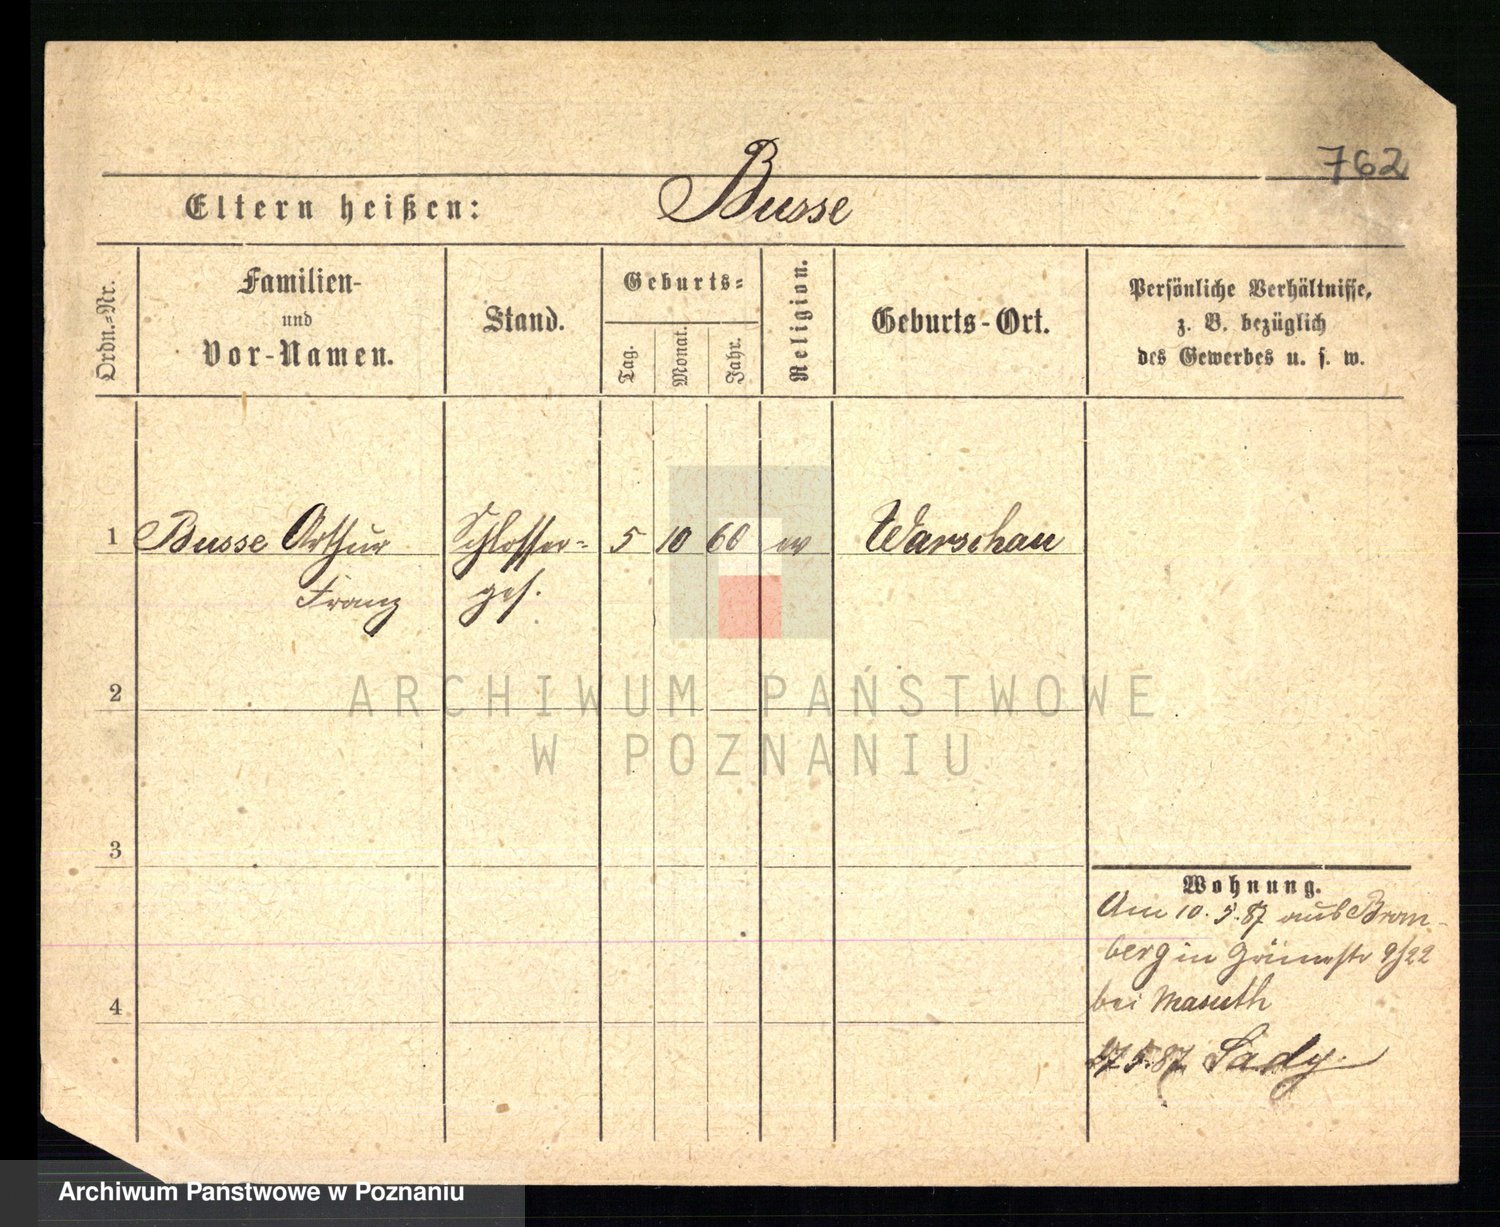 762
Eltern heißen: Busse
Ordn.-Nr.
Familien-
und
Vor-Namen.
Stand.
Geburts-
Tag.
Monat.
Jahr.
Religion.
Geburts-Ort.
Persönliche Verhältnisse,
z. B. bezüglich
des Gewerbes u. s. w.
1 Busse Arthur Schlosser- 5 10 60 Warschau
Franz ges.
2
ARCHIWUM PAŃSTWOWE
W POZNANIU
3
Wohnung.
Am 10.5.87 aus Brom-
berg in 9/22
bei Masuth
27 5.87 Sady.
4
Archiwum Państwowe w Poznaniu